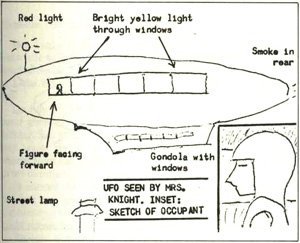 Red light
Bright yellow light
through windows
Smoke in
rear
Figure facing
forward
Gondola with
windows
Street lamp
UFO SEEN BY MRS.
KNIGHT. INSET:
SKETCH OF OCCUPANT